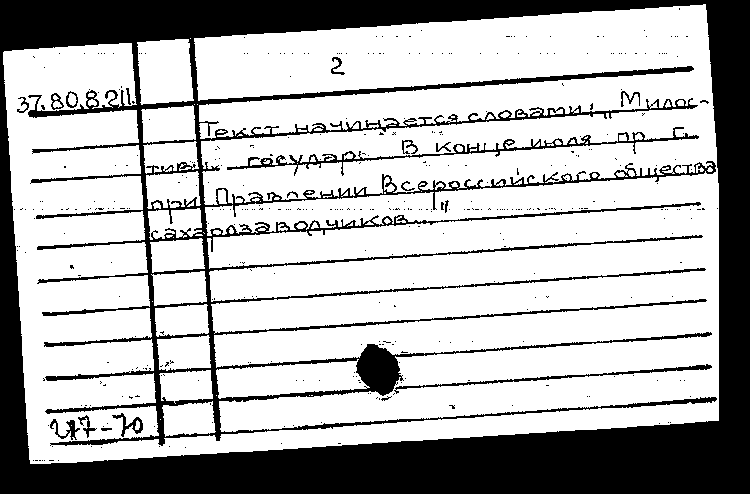 2
37.80.8.211.
Текст начинается словами: „Милос-
тивый государь В конце июля пр. г.
при Правлении Всероссийского общества
сахарозаводчиков..."
247-70